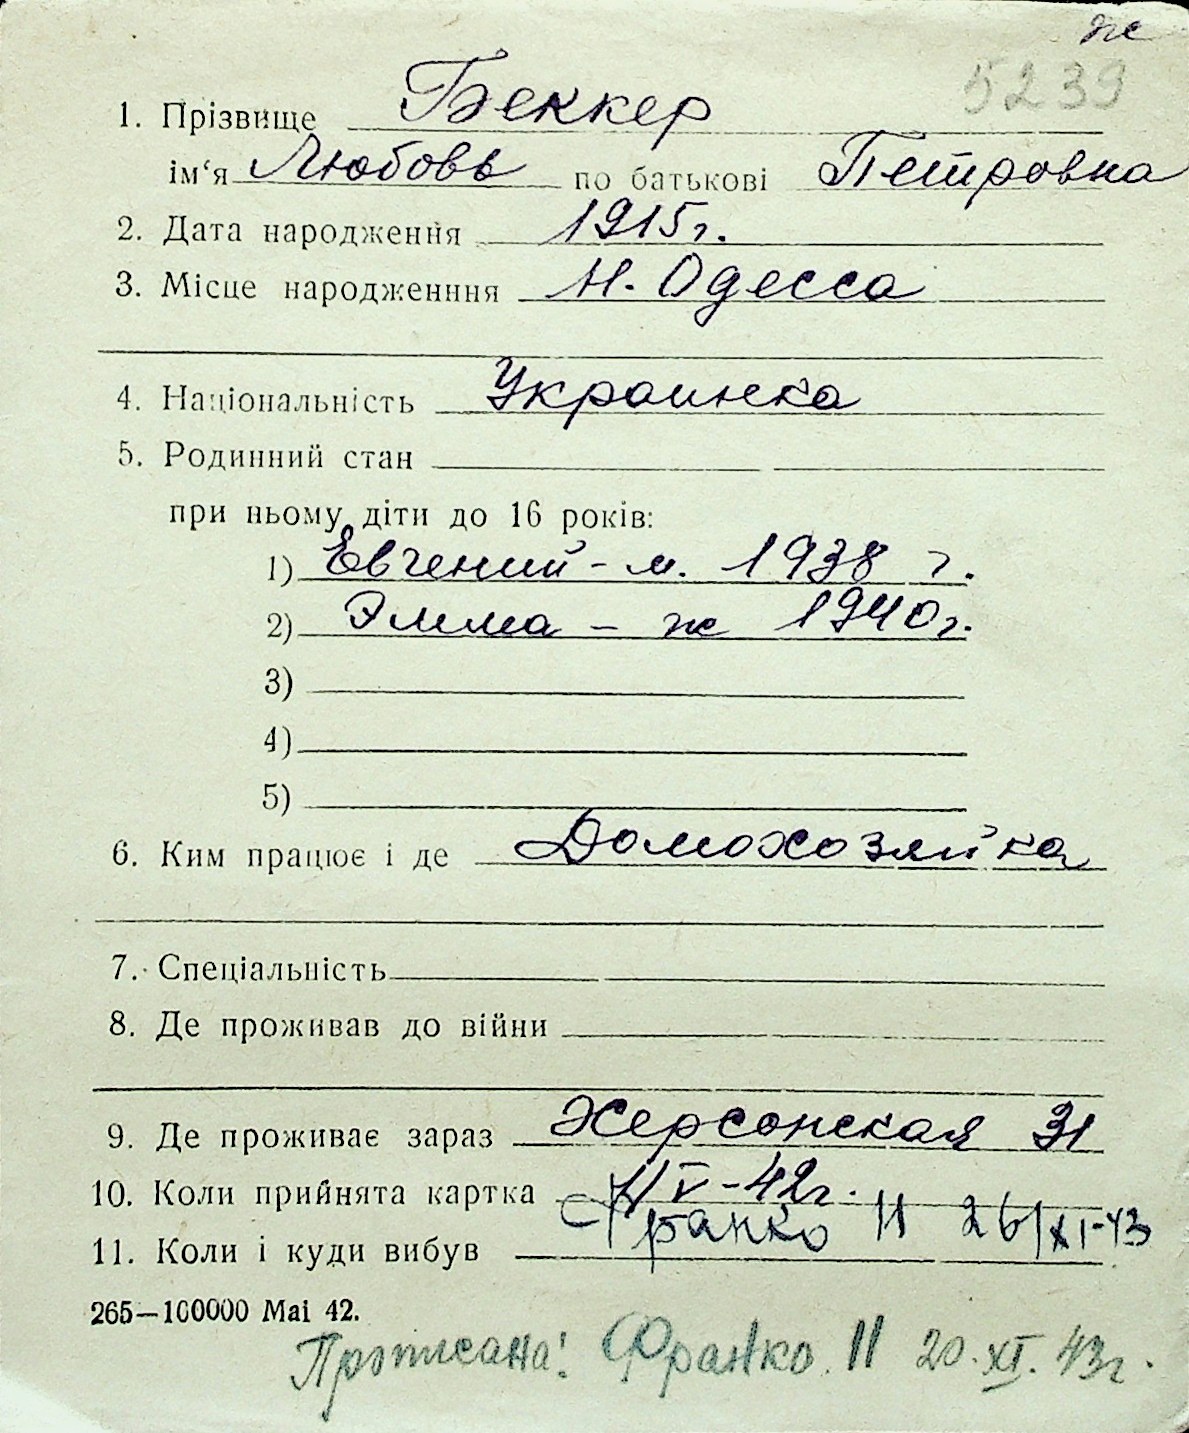 ж
5239
1. Прізвище Беккер
ім‘я Любовь по батькові Петровна
2. Дата народження 1915г.
3. Місце народженння Н. Одесса
4. Національність Украинка
5. Родинний стан
при ньому діти до 16 років:
1) Евгений - м. 1938 г.
2) Эмма - ж 1940г.
3)
4)
5)
6. Ким працює і де Домохозяйка
7. Спеціальність
8. Де проживав до війни
9. Де проживає зараз Херсонская 31
10. Коли прийнята картка V-42г.
11. Коли і куди вибув Франко 11 26/XI-43
265—100000 Маі 42.
Прописана: Франко. 11 20. XI. 43г.